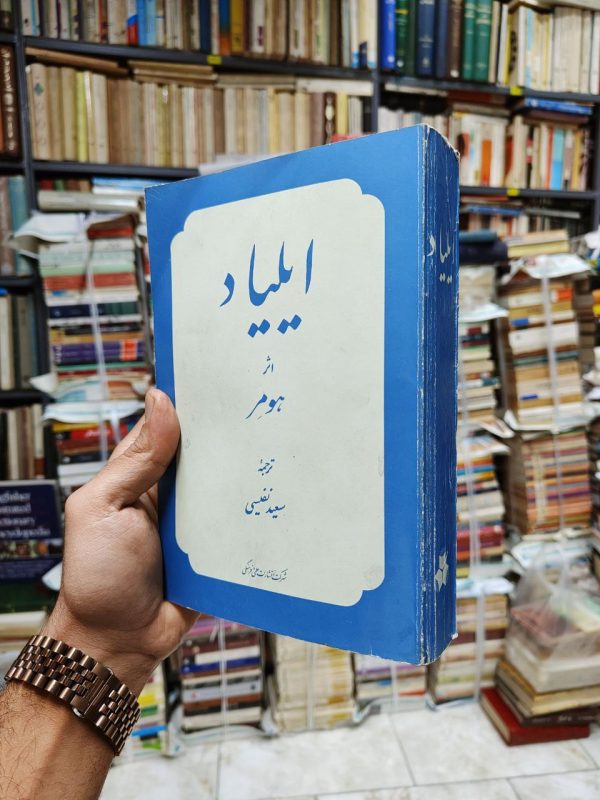 ایلیاد
اثر
هومر
ترجمهٔ
سعید نفیسی
شرکت انتشارات علمی و فرهنگی
ایلیاد